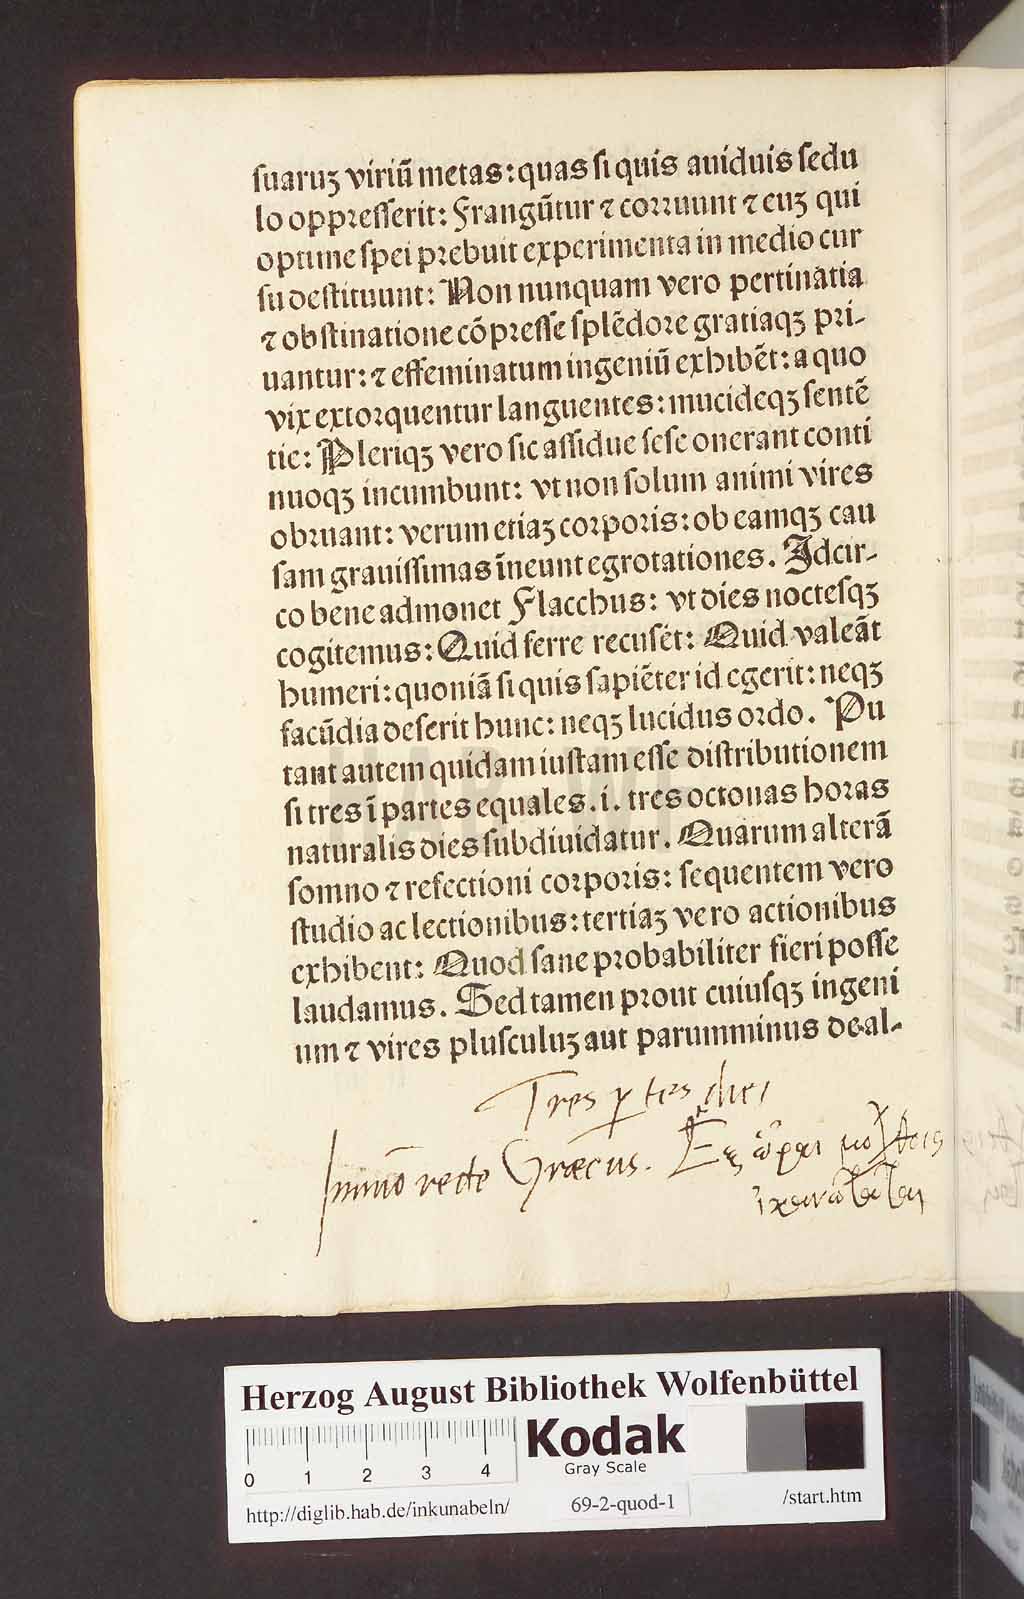 ſuaruꝫ viriū metas: quas ſi quis auiduis ſedu
lo oppreſſerit: Frangūtur ⁊ corruunt ⁊ euꝫ qui
optime ſpei prebuit experimenta in medio cur
ſu deſtituunt: Non nunquam vero pertinatia
⁊ obſtinatione cōpreſſe ſplēdore gratiaqꝫ pri-
uantur: ⁊ effeminatum ingeniū exhibēt: a quo
vix extorquentur languentes: mucideqꝫ ſentē
tie: Pleriqꝫ vero ſic aſſidue ſeſe onerant conti
nuoqꝫ incumbunt: vt non ſolum animi vires
obruant: verum etiaꝫ corporis: ob eamqꝫ cau
ſam grauiſſimas īneunt egrotationes. Idcir-
co bene admonet Flacchus: vt dies nocteſqꝫ
cogitemus: Quid ferre recuſēt: Quid valeāt
humeri: quoniā ſi quis ſapiēter id egerit: neqꝫ
facūdia deſerit hunc: neqꝫ lucidus ordo. Pu
tant autem quidam iuſtam eſſe diſtributionem
ſi tres ī partes equales .i. tres octonas horas
naturalis dies ſubdiuidatur. Quarum alterā
ſomno ⁊ refectioni corporis: ſequentem vero
ſtudio ac lectionibus: tertiaꝫ vero actionibus
exhibent: Quod ſane probabiliter fieri poſſe
laudamus. Sed tamen prout cuiuſqꝫ ingeni
um ⁊ vires pluſculuꝫ aut parumminus de al-
Tres ꝑtes diei
Immo recte Græcus. Ἓξ ὧραι
HAB WF
Herzog August Bibliothek Wolfenbüttel
0 1 2 3 4
Kodak
Gray Scale
http://diglib.hab.de/inkunabeln/ 69-2-quod-1 /start.htm